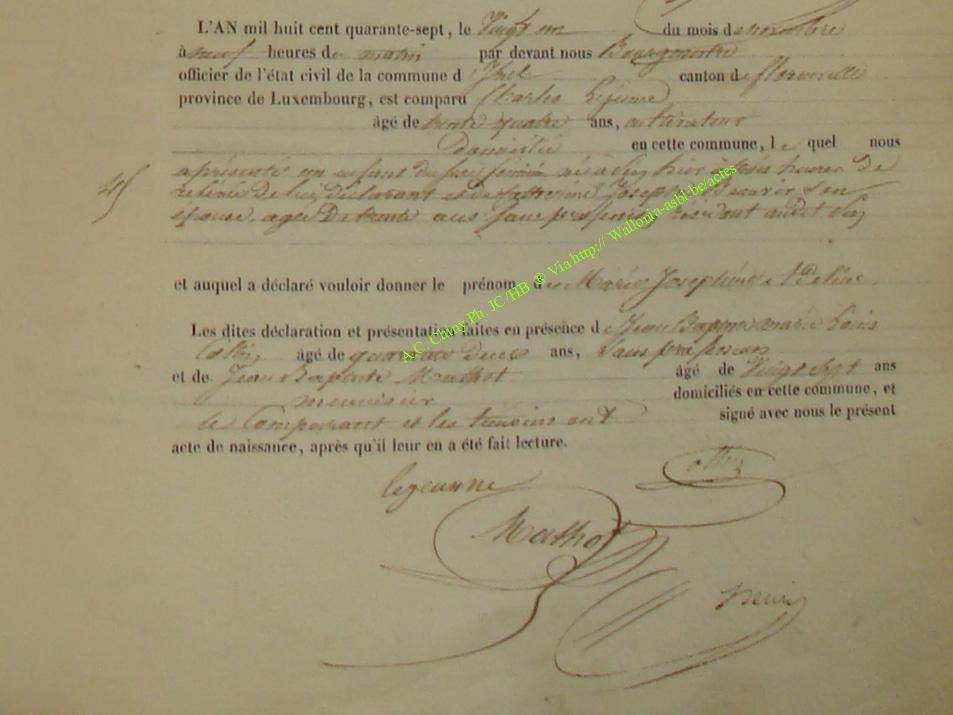 L'AN mil huit cent quarante-sept, le Vingt un du mois de novembre
à neuf heures du matin par devant nous Bourgmestre
officier de l'état civil de la commune d canton de florenville
province de Luxembourg, est comparu Charles Lejeune
âgé de trente quatre ans, cultivateur
Domicilié en cette commune, le quel nous
45
a présenté un enfant du sexe féminin né à hier à heures de
relevée de lui déclarant et de Catherine Joseph son
épouse, agée de trente ans sans profession résidant audit
et auquel a déclaré vouloir donner le prénom de Marie Joséphine Adeline.
Les dites déclaration et présentation faites en présence de Jean Baptiste marie Louis
Collin, âgé de quarante Deux ans, Sans profession
et de Jean Baptiste Mathot âgé de Vingt sept ans
menuisier domiciliés en cette commune, et
le Comparant et les témoins ont signé avec nous le présent
acte de naissance, après qu'il leur en a été fait lecture.
lejeunne
Collin
Mathot
henri
A.C. Chiny Ph. JC/HB © Via http:// Wallonia-asbl.be/actes